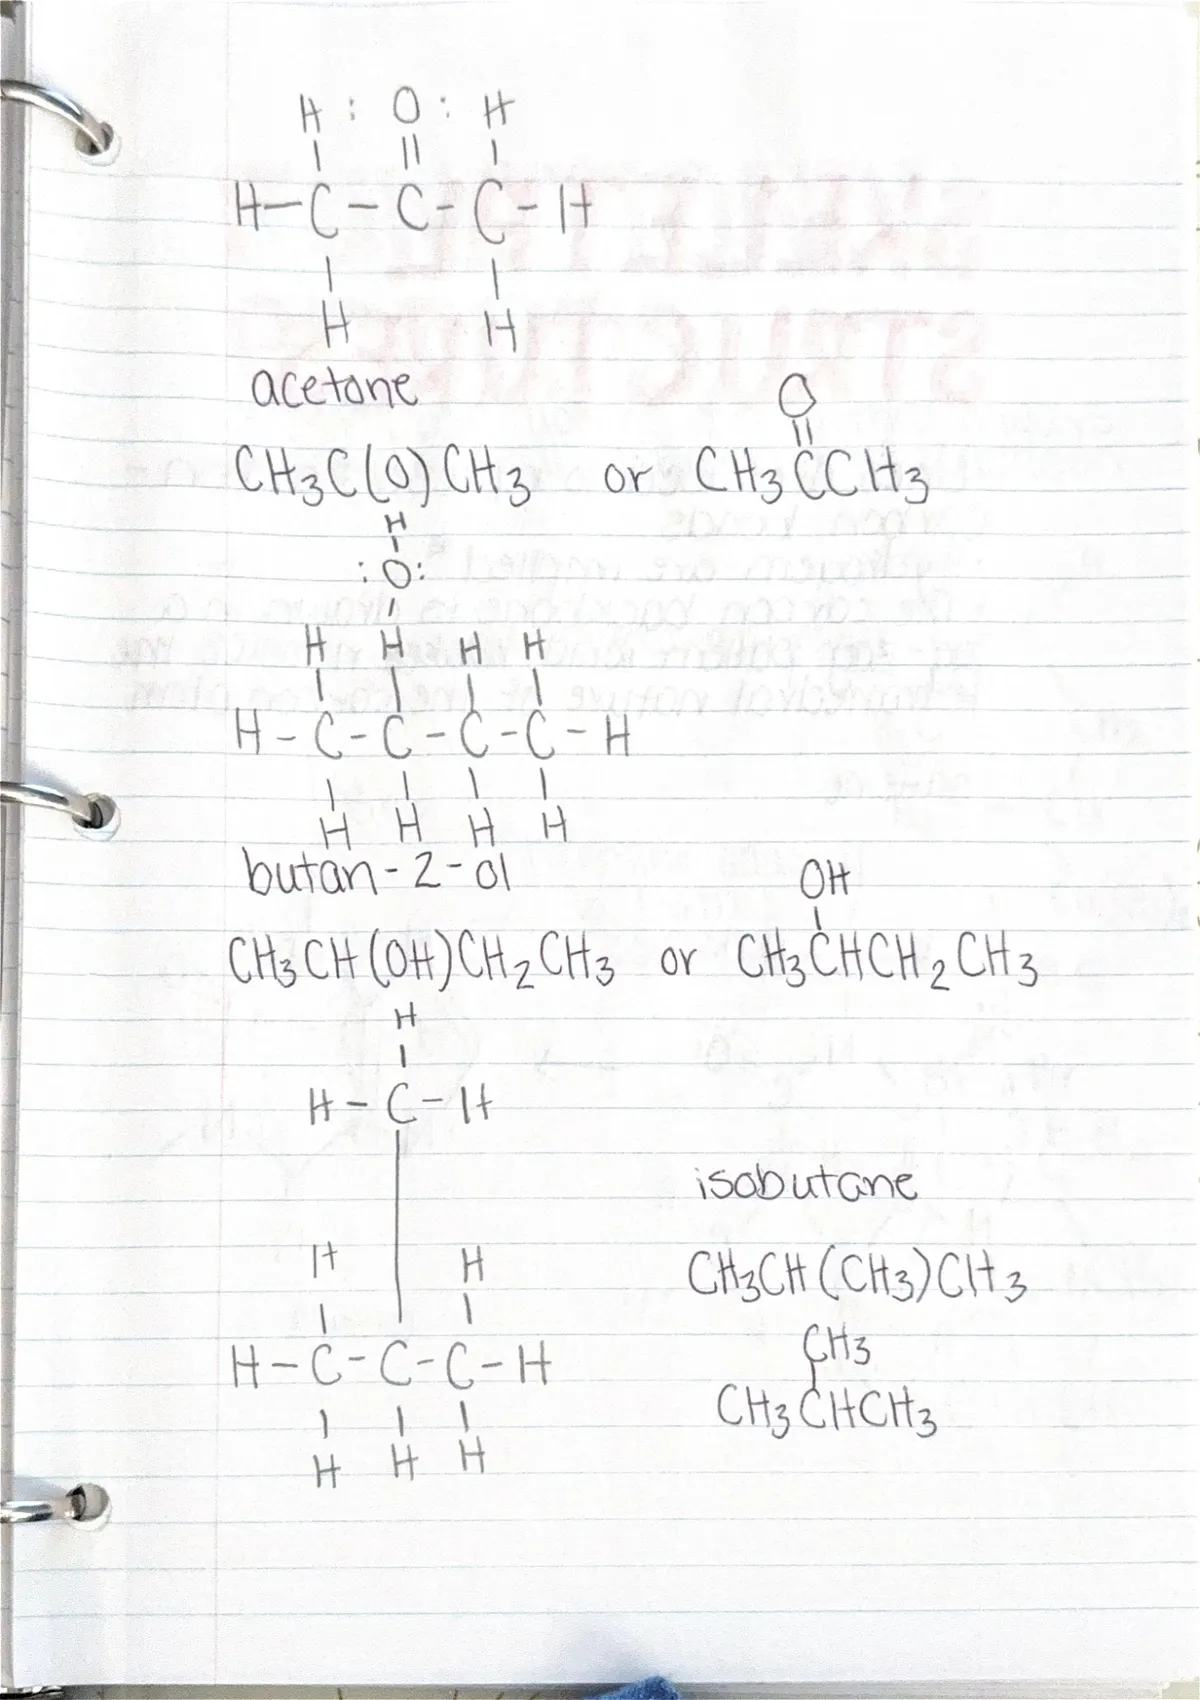 H :O: H
| || |
H-C-C-C-H
| |
H H
acetone
CH3C(O)CH3 or CH3CCH3
O
||
H
|
:O:
|
H H H H
| | | |
H-C-C-C-C-H
| | | |
H H H H
butan-2-ol
CH3CH(OH)CH2CH3 or CH3CHCH2CH3
OH
|
H
|
H-C-H
|
H H
| |
H-C-C-C-H
| | |
H H H
isobutane
CH3CH(CH3)CH3
CH3
|
CH3CHCH3